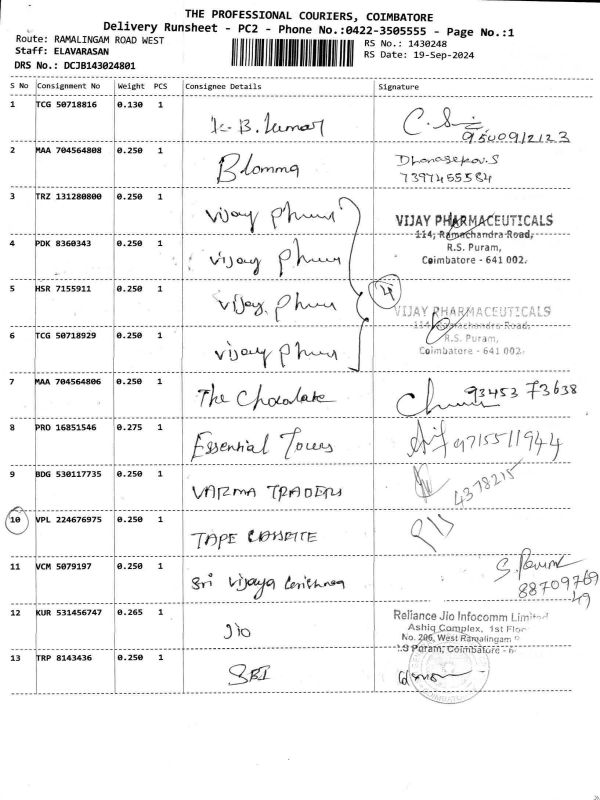 THE PROFESSIONAL COURIERS, COIMBATORE
Delivery Runsheet - PC2 - Phone No.:0422-3505555 - Page No.:1
Route: RAMALINGAM ROAD WEST
RS No.: 1430248
Staff: ELAVARASAN
RS Date: 19-Sep-2024
DRS No.: DCJB143024801
S No Consignment No Weight PCS Consignee Details Signature
1 TCG 50718816 0.130 1 K. B. Kumar
9500912123
2 MAA 704564808 0.250 1 Blomma Dhanasekar.S
7397455584
3 TRZ 131280800 0.250 1 vijay
VIJAY PHARMACEUTICALS
114, Ramachandra Road,
4 PDK 8360343 0.250 1 vijay
R.S. Puram,
Coimbatore - 641 002.
5 HSR 7155911 0.250 1 vijay
4
VIJAY PHARMACEUTICALS
114, Ramachandra Road,
6 TCG 50718929 0.250 1 vijay
R.S. Puram,
Coimbatore - 641 002.
7 MAA 704564806 0.250 1 The Chocolate 93453 73638
8 PRO 16851546 0.275 1 Essential Tours 9715511944
9 BDG 530117735 0.250 1 VARMA TRADERS 4378215
10 VPL 224676975 0.250 1 TAPE CASSETTE
11 VCM 5079197 0.250 1 Sri Vijaya
88709769
49
12 KUR 531456747 0.265 1 Jio
Reliance Jio Infocomm Limited
Ashiq Complex, 1st Floor
No. 206, West Ramalingam
R.S Puram, Coimbatore - 6
13 TRP 8143436 0.250 1 SBI